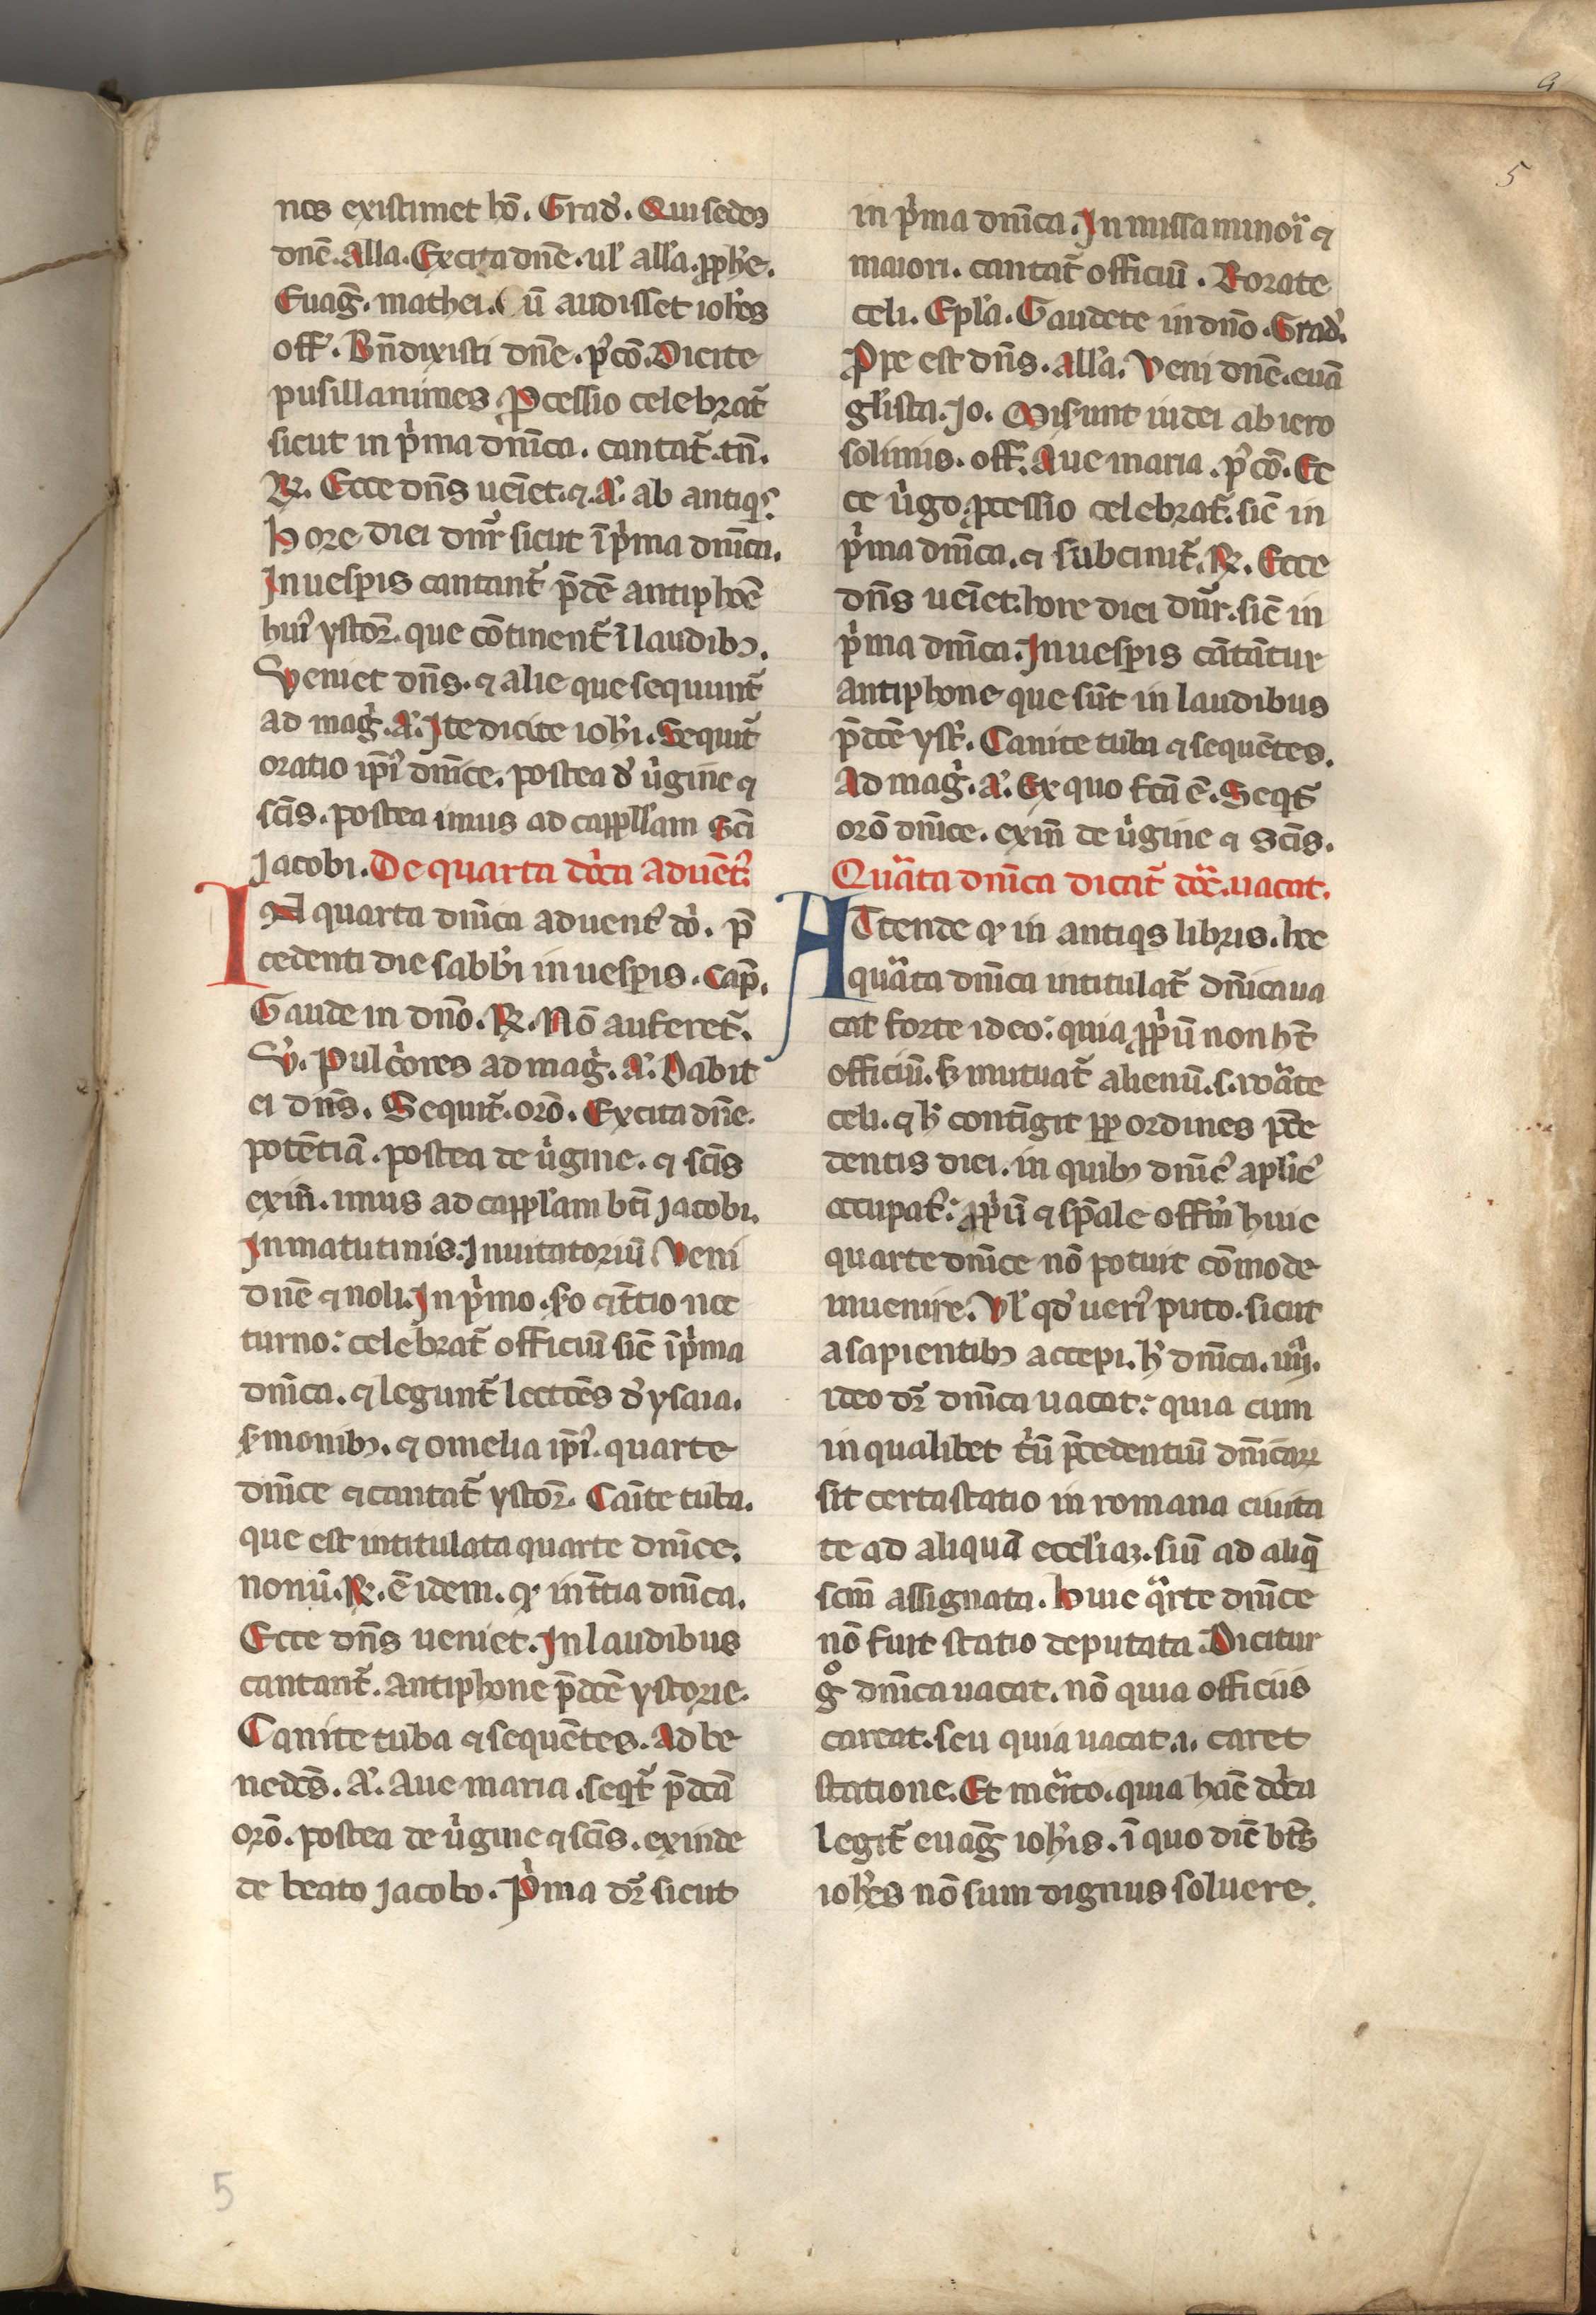 5
nos existimet hō. Grad̉. Qui sedes
dn̄e. Alla. Excita dn̄e. ul̉ all̉a. ꝓph̉e.
Euaḡ. mathei. Cū audisset ioh̉es
off̉. Bn̄dixisti dn̄e. p̉cō. Dicite
pusillanimes. Ꝓcessio celebrat᷑
sicut in p̉ma dn̄ica. cantat᷑. tn̄.
℞. Ecce dn̄s ueīet. ⁊. A᷑. ab antiqͥs.
Hore diei dn̄r sicut ī p̉ma dn̄ica.
In uesp̱is cantant᷑ p̄dc̄e antiphōe
huiꝰ ystor̄. que cōtinent᷑ ī laudibꝫ.
Veniet dn̄s. ⁊ alie que sequunt᷑
ad mag̉. A᷑. Ite dicite ioh̉i. Sequit᷑
oratio ip̄iꝰ dn̄ice. postea d̉ ỦGgine ⁊
sc̄is. postea imus ad cappll̉am Sc̄i
Jacobi. De quarta dc̉ca aduēt᷑.
IN quarta dn̄ica aduent᷑ do᷑. p̄
cedenti die sabb̉i in uesp̱is. Cap̄.
Gaude in dn̄o. ℞. Nō auferet᷑.
V᷑. Pulc̉ores ad mag̉. A᷑. Dabit
ei dn̄s. Sequit᷑. orō. Excita dn̄e.
potētiā. postea de u̓gine. ⁊ sc̄is
exin̄. imus ad cappl̉am bt̄i Jacobi.
In matutinis. Inuitatoriū Veni
dn̄e ⁊ noli. In p̉mo. sc̉o ⁊ t̄tio noc
turno: celebrat᷑ officiū sic̄ ī p̉ma
dn̄ica. ⁊ legunt᷑ lectōes d̉ ysaia.
s̉monibꝫ. ⁊ omelia ip̄iꝰ. quarte
dn̄ice ⁊ cantat᷑ ystor̄. Cāite tuba.
que est intitulata quarte dn̄ice.
nonū. ℞. ē idem. qͥ in t̄tia dn̄ica.
Ecce dn̄s ueniet. In laudibus
cantant᷑. Antiphone p̄dc̄e ystorie.
Canite tuba ⁊ sequētes. Ad be
nedc̄s. A᷑. Aue maria. seqͥt᷑ p̄dcā
orō. postea de u̓gine ⁊ sc̄is. exinde
de beato Jacobo. P̉ma dr̄ sicut
in p̉ma dn̄ica. In missa minoꝛi ⁊
maiori. cantat᷑ officiū. Rorate
celi. Epl̉a. Gaudete in dn̄o. Grad̉.
Ꝓpe est dn̄s. All̉a. Veni dn̄e. euā
gl̉ista. Jo. Miserunt iudei ab iero
solimis. off̉. Aue maria. p̉cō. Ec
ce u̓go. ꝓcessio celebrat᷑. sic̄ in
p̉ma dn̄ica. ⁊ subcinit᷑. ℞. Ecce
dn̄s ueīet. hore diei dn̄r. sic̄ in
p̉ma dn̄ica. In uesp̱is cātātur
antiphone que sūt in laudibus
p̄dc̄e yst̉. Canite tuba ⁊ sequētes.
Ad mag̉. A᷑. Ex quo fc̄ā ē. Seqͥt᷑
orō dn̄ice. exin̄ de u̓gine ⁊ Sc̄is.
Quᷓta dn̄ica dicat᷑ dc̄. uacat.
ATtende qͥ in antiqͥs libris. hec
quᷓta dn̄ica intitulat᷑ dn̄ica ua
cat forte ideo: quia ꝓp̉ū non hꝫt
officiū. s̉ mutuat᷑ alienū. s. roᷓte
celi. ⁊ h̉ contīgit ꝓp̱ ordines p̄ce
dentis diei. in quibꝫ dn̄icꝰ ap̱licꝰ
occupat᷑: ꝓp̉ū ⁊ sp̄ale off̄m huic
quarte dn̄ice nō potuit cōmode
inuenire. Vl̉ qd̉ ueriꝰ puto. sicut
a sapientibꝫ accepi. h̉ dn̄ica. iiij.
ideo dr̄ dn̄ica uacat: quia cum
in qualibet t̉ū p̄cedentiū dn̄icaꝝ
sit certa statio in romana ciuita
te ad aliquā eccl̉iaꝫ. siū ad aliq̄
scm̄ assignata. Huic qᷓrte dn̄ice
nō fuit statio deputata. Dicitur
gͦ dn̄ica uacat. nō quia officiis
careat. seu quia uacat. i. caret
statione. Et meᷓito. quia hac̄ dc̉ca
legit᷑ euaḡ ioh̉is. ī quo dic̄ bt̄s
ioh̉es nō sum dignus soluere.
5